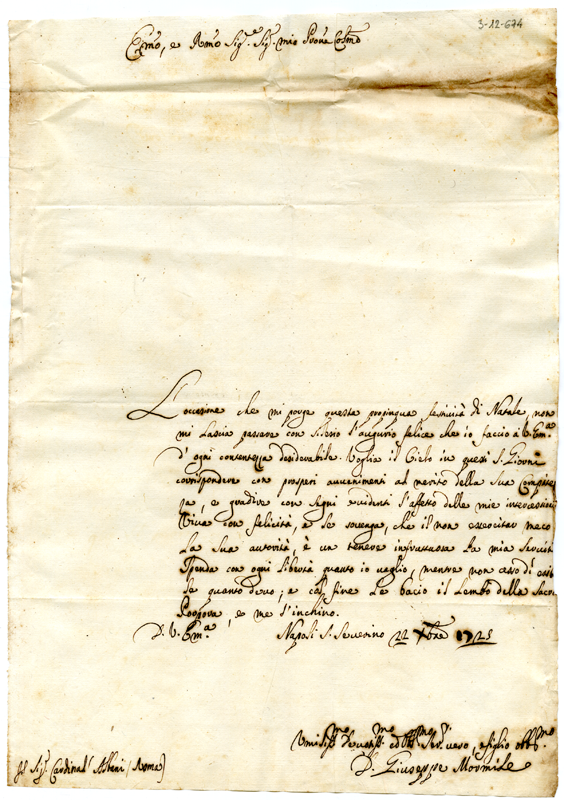 3-12-674
Emo, e Rmo Sig.re Sig.r mio Prone Colmo
L'occasione che mi porge questa propinqua festività di Natale, non
mi lascia passare con silenzio l'augurio felice che io faccio à V. Em.a
d'ogni contentezza desiderabile. Voglia il Cielo in questi S. Giorni
corrispondere con prosperi avvenimenti al merito della Sua
e gradire con segni evidenti l'affetto delle mie
Viva con felicità, e se sovenga, che il non esercitar meco
la Sua autorità, è un tenere infruttuosa la mia Servitù
Spenda con ogni libertà quanto io vaglio, mentre non
quanto devo, e col fine Le bacio il Lembo della Sacra
Porpora, e me l'inchino.
D. V. Em.a Napoli S. Severino 22 Xbre 1725
Umiliss.mo Devotiss.mo ed Servo vero, e figlio obb.mo
D. Giuseppe Mormile
Sig.r Cardinal Albani (Roma)